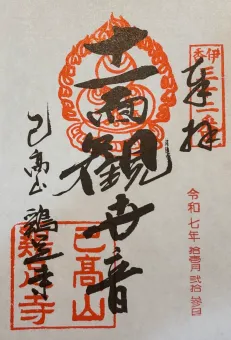 奉拝
伊香
令和七年 拾壱月 弐拾参日
十一面観世音
己高山 鶏足寺
己高山
鶏足寺